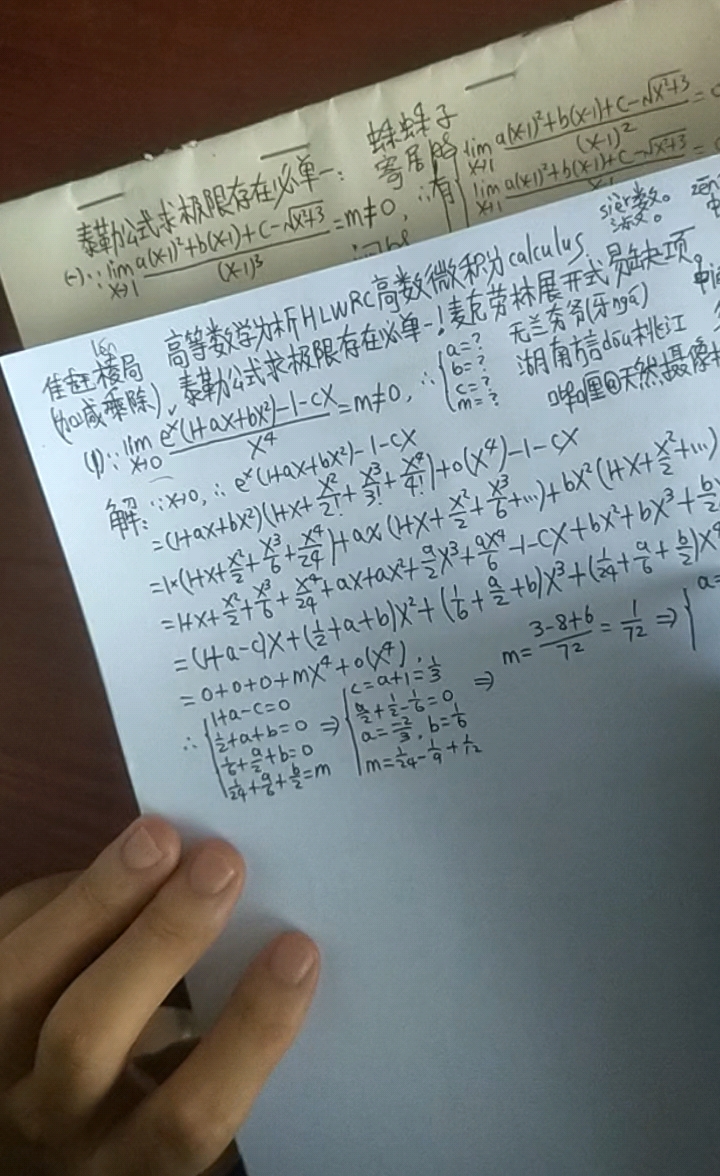 蛛蛛子
泰勒公式求极限存在必单一:
寄居
(一)∵ lim x→1 a(x-1)²+b(x-1)+C-√x²+3 / (x-1)³ =m≠0, ∴有
lim x→1 a(x-1)²+b(x-1)+C-√x²+3 / (x-1)² =
lim x→1 a(x-1)²+b(x-1)+C-√x²+3
高等数学分析HLWRC高数微积分calculus.
泰勒公式求极限存在必单一!麦克劳林展开式易缺项。
lén
棱局
(加减乘除)、
(1)∵ lim x→0 eˣ(1+ax+bx²)-1-cx / x⁴ =m≠0, ∴ { a=? b=? c=? m=?
(牙ngá)
湖南方言dōu桃江
@天然摄像
解: ∵x→0, ∴ eˣ(1+ax+bx²)-1-cx
=(1+ax+bx²)(1+x+x²/2!+x³/3!+x⁴/4!)+o(x⁴)-1-cx
=1×(1+x+x²/2+x³/6+x⁴/24)+ax(1+x+x²/2+x³/6+…)+bx²(1+x+x²/2+…)
=1+x+x²/2+x³/6+x⁴/24+ax+ax²+a/2x³+ax⁴/6-1-cx+bx²+bx³+b/2
=(1+a-c)x+(1/2+a+b)x²+(1/6+a/2+b)x³+(1/24+a/6+b/2)x⁴
=0+0+0+mx⁴+o(x⁴).
∴ { 1+a-c=0 1/2+a+b=0 1/6+a/2+b=0 1/24+a/6+b/2=m
⇒ { c=a+1=1/3 a/2+1/2-1/6=0 a=-2/3, b=1/6 m=1/24-1/9+1/12
⇒ m=3-8+6/72=1/72 ⇒ { a=